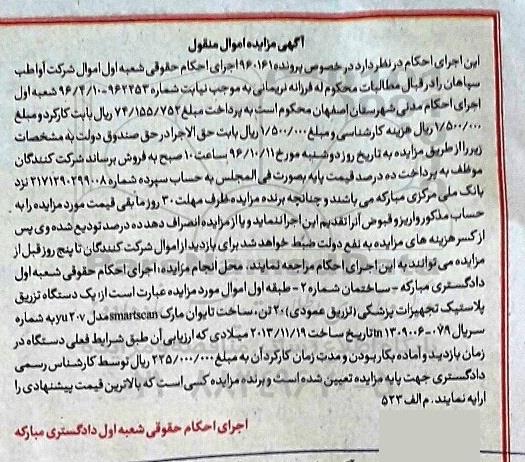 آگهی مزایده اموال منقول
این اجرای احکام در نظر دارد در خصوص پرونده ۹۶۰۱۶۱ اجرای احکام حقوقی شعبه اول اموال شرکت آواطب
سپاهان را در قبال مطالبات محکوم له فرزانه نریمانی به موجب نیابت شماره ۹۶۲۴۵۳-۹۶/۴/۱۰ شعبه اول
اجرای احکام مدنی شهرستان اصفهان محکوم است به پرداخت مبلغ ۷۴/۱۵۵/۷۵۲ ریال بابت کارکرد و مبلغ
۱/۵۰۰/۰۰۰ ریال هزینه کارشناسی و مبلغ ۱/۵۰۰/۰۰۰ ریال بابت حق الاجرا در حق صندوق دولت به مشخصات
زیر را از طریق مزایده به تاریخ روز دوشنبه مورخ ۹۶/۱۰/۱۱ ساعت ۱۰ صبح به فروش برساند شرکت کنندگان
موظف به پرداخت ده درصد قیمت پایه بصورت فی المجلس به حساب سپرده شماره ۲۱۷۱۲۹۰۲۹۹۰۰۸ نزد
بانک ملی مرکزی مبارکه می باشند و چنانچه برنده مزایده ظرف مهلت ۳۰ روز مابقی قیمت مورد مزایده را به
حساب مذکور واریز و قبوض آنرا تقدیم این اجرا ننماید و یا از مزایده انصراف دهد ده درصد تودیع شده وی پس
از کسر هزینه های مزایده به نفع دولت ضبط خواهد شد برای بازدید از اموال شرکت کنندگان تا پنج روز قبل از
مزایده می توانند به این اجرای احکام مراجعه نمایند. محل انجام مزایده: اجرای احکام حقوقی شعبه اول
دادگستری مبارکه – ساختمان شماره ۲ – طبقه اول اموال مورد مزایده عبارت است از: یک دستگاه تزریق
پلاستیک تجهیزات پزشکی (تزریق عمودی) ۲۰ تن، ساخت تایوان مارک smartscan مدل yu ۲۰۷ به شماره
سریال in ۱۳۰۹۰۰۶-۰۷۹ تاریخ ساخت ۲۰۱۳/۱۱/۱۹ میلادی که ارزیابی آن طبق شرایط فعلی دستگاه در
زمان بازدید و آماده بکار بودن و مدت زمان کارکرد آن به مبلغ ۲۲۵/۰۰۰/۰۰۰ ریال توسط کارشناس رسمی
دادگستری جهت پایه مزایده تعیین شده است و برنده مزایده کسی است که بالاترین قیمت پیشنهادی را
ارایه نمایند. م الف ۵۲۳
اجرای احکام حقوقی شعبه اول دادگستری مبارکه